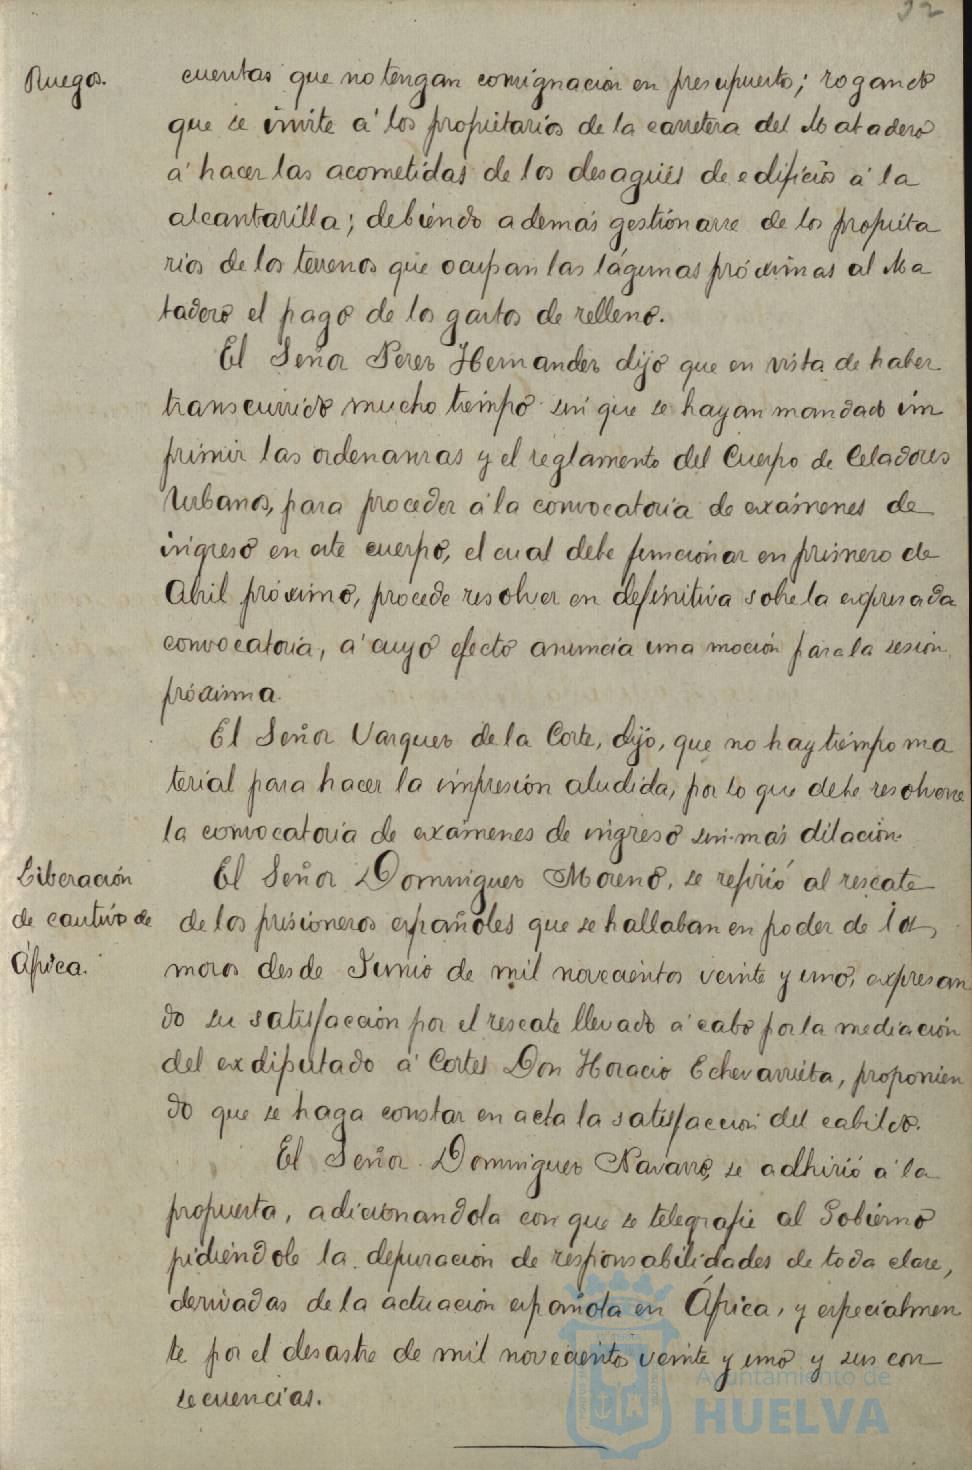 32
Ruegos.
cuentas que no tengan consignación en presupuesto; rogando
que se invite á los propietarios de la carretera del Matadero
á hacer las acometidas de los desagües de edificios á la
alcantarilla; debiendo además gestionarse de los propieta
rios de los terrenos que ocupan las lágunas próximas al Ma
tadero el pago de los gastos de relleno.
El Señor Perez Hernandez dijo que en vista de haber
transcurrido mucho tiempo sin que se hayan mandado im
primir las ordenanzas y el reglamento del Cuerpo de Celadores
Urbanos, para proceder á la convocatoria de exámenes de
ingreso en este cuerpo, el cual debe funcionar en primero de
Abril próximo, procede resolver en definitiva sobre la expresada
convocatoria, á cuyo efecto anuncia una moción para la sesión
próxima.
El Señor Vazquez de la Corte, dijo, que no hay tiempo ma
terial para hacer la impresión aludida, por lo que debe resolverse
la convocatoria de exámenes de ingreso sin más dilación.
Liberación
de cautivos de
África.
El Señor Dominguez Moreno, se refirió al rescate
de los prisioneros españoles que se hallaban en poder de los
moros desde Junio de mil novecientos veinte y uno, expresan
do su satisfacción por el rescate llevado á cabo por la mediación
del exdiputado á Cortes Don Horacio Echevarrieta, proponien
do que se haga constar en acta la satisfacción del cabildo.
El Señor Dominguez Navarro, se adhirió á la
propuesta, adicionandola con que se telegrafíe al Gobierno
pidiéndole la depuración de responsabilidades de toda clase,
derivadas de la actuación española en África, y especialmen
te por el desastre de mil novecientos veinte y uno y sus con
secuencias.
Ayuntamiento de
HUELVA